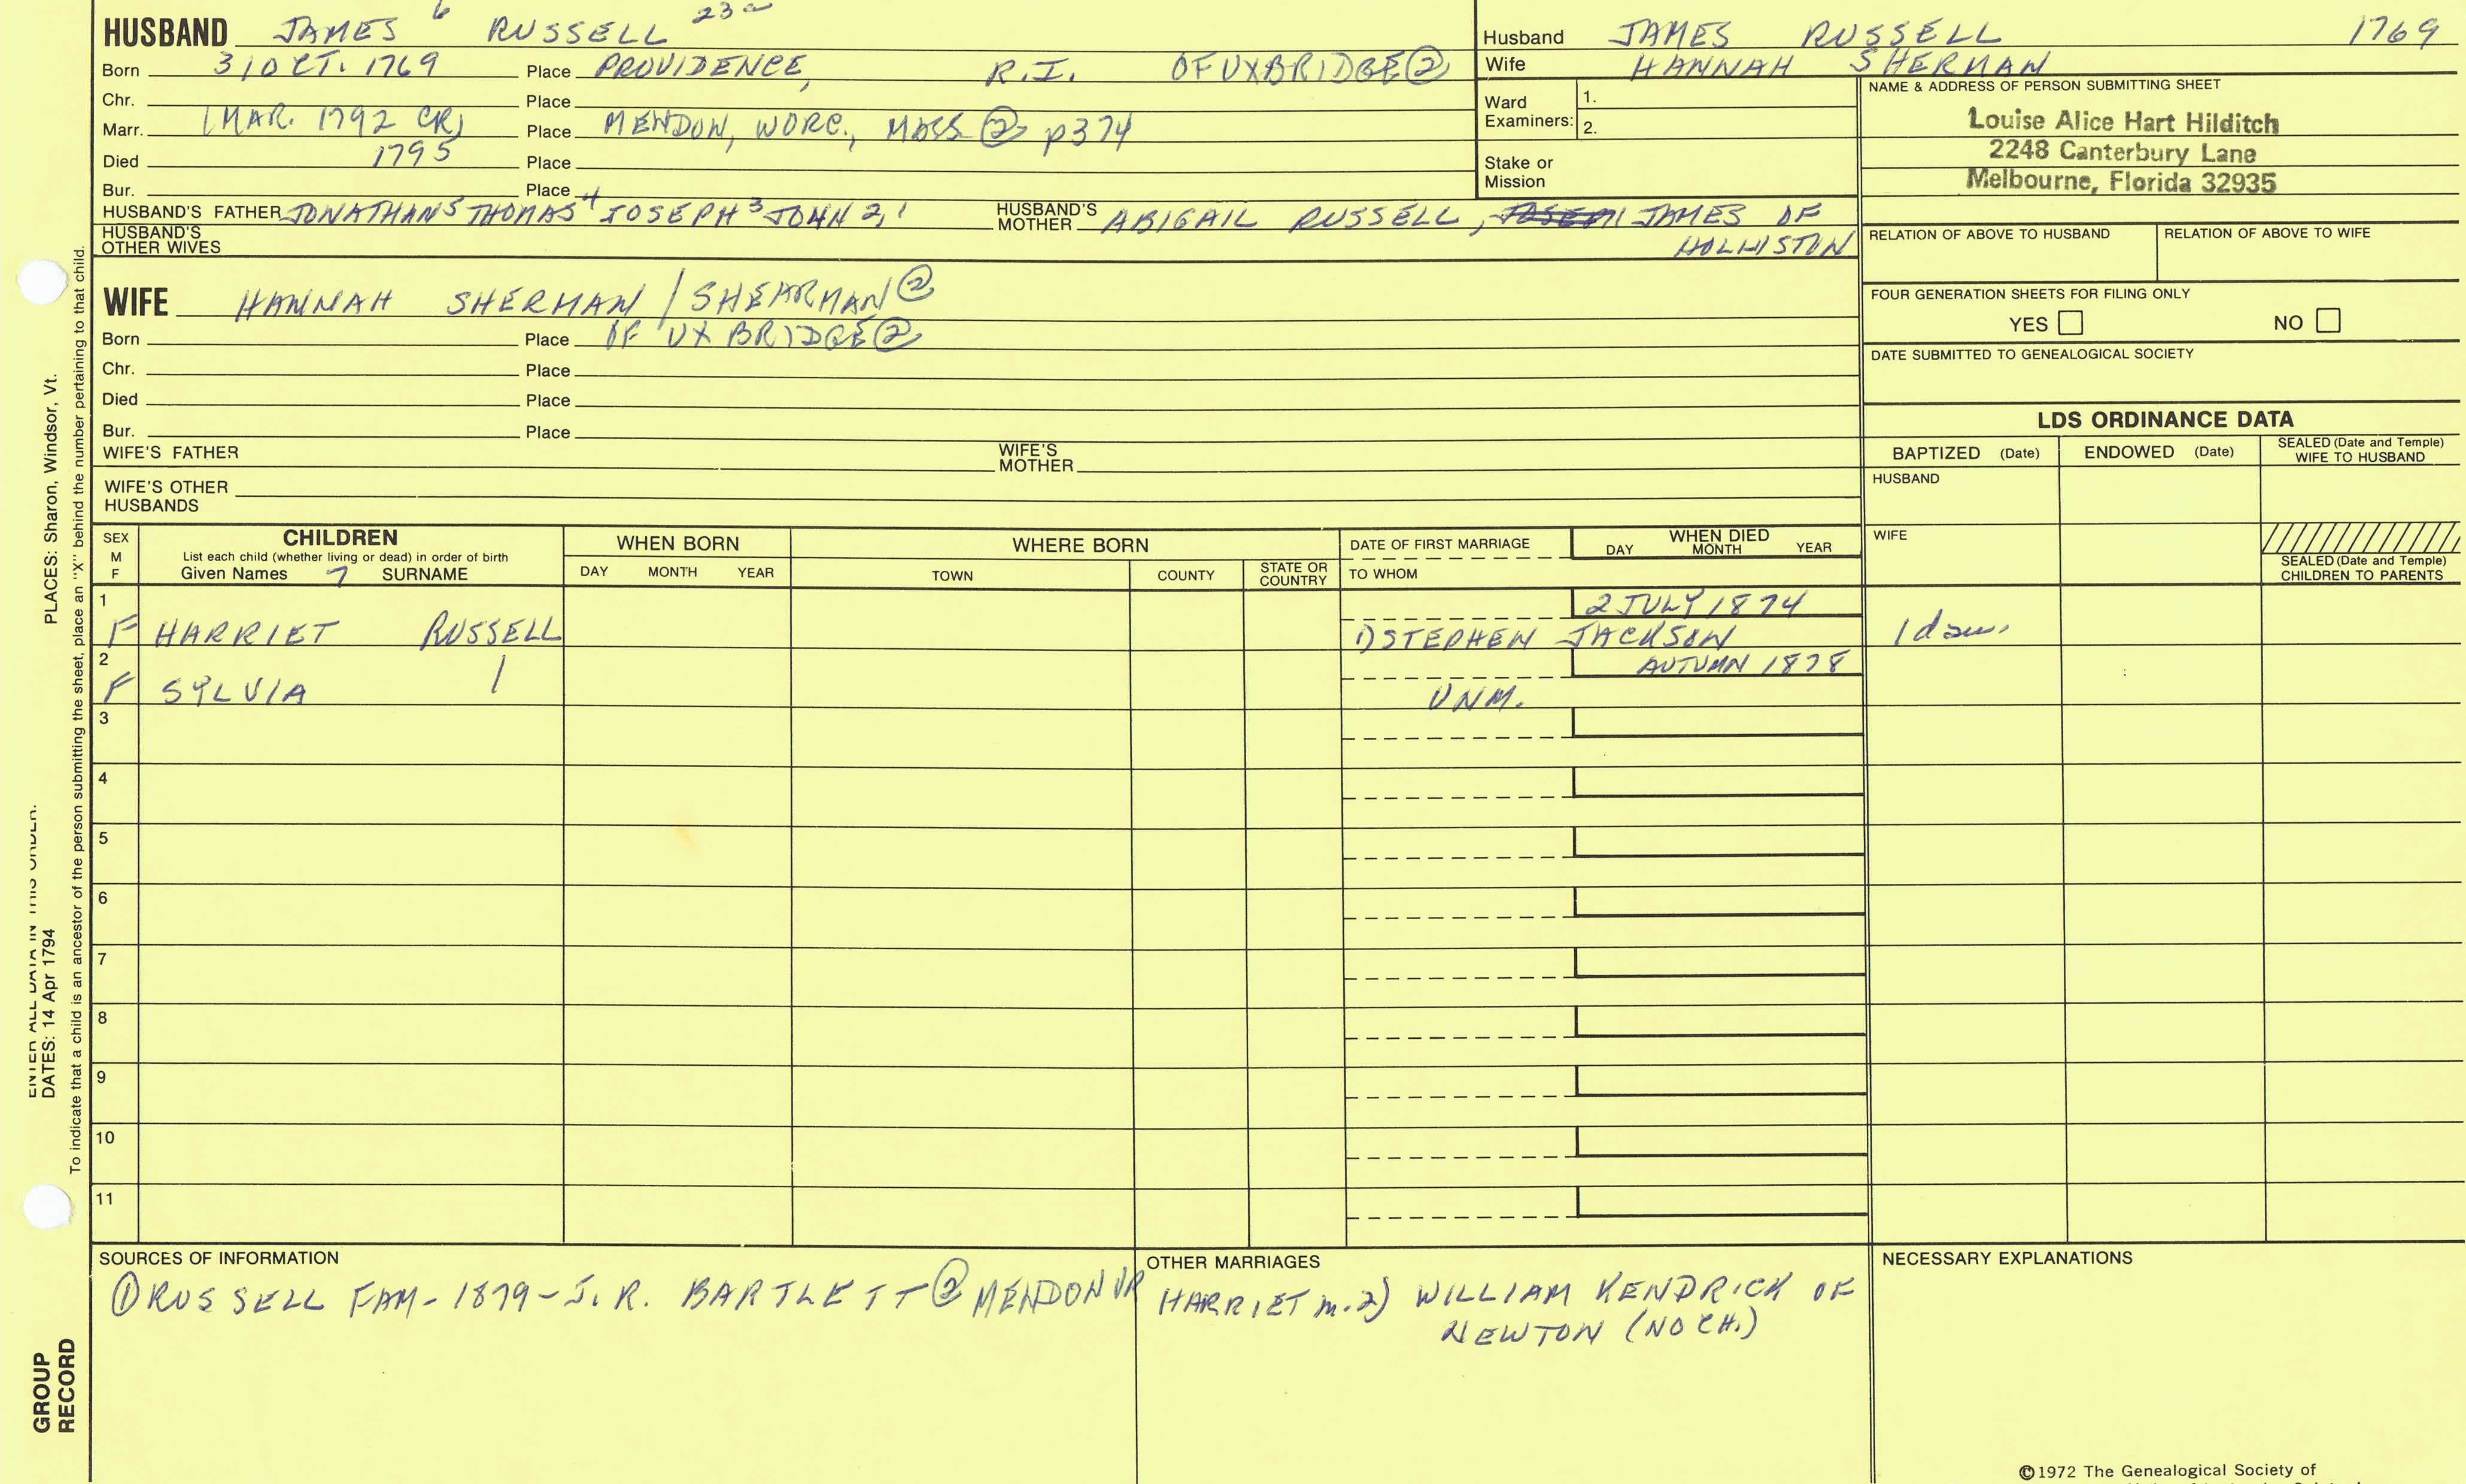 HUSBAND JAMES 6 RUSSELL 23a
Born 31 OCT. 1769 Place PROVIDENCE, R.I. OF UXBRIDGE ②
Chr. Place
Marr. (MAR. 1792 CR) Place MENDON, WORC., MASS ② p374
Died 1795 Place
Bur. Place
HUSBAND'S FATHER JONATHAN 5 THOMAS 4 JOSEPH 3 JOHN 2,1 HUSBAND'S MOTHER ABIGAIL RUSSELL, JAMES OF
HOLLISTON
HUSBAND'S OTHER WIVES
WIFE HANNAH SHERMAN / SHEARMAN ②
Born Place OF UXBRIDGE ②
Chr. Place
Died Place
Bur. Place
WIFE'S FATHER WIFE'S MOTHER
WIFE'S OTHER HUSBANDS
Husband JAMES RUSSELL 1769
Wife HANNAH SHERMAN
Ward Examiners: 1.
2.
Stake or Mission
NAME & ADDRESS OF PERSON SUBMITTING SHEET
Louise Alice Hart Hilditch
2248 Canterbury Lane
Melbourne, Florida 32935
RELATION OF ABOVE TO HUSBAND RELATION OF ABOVE TO WIFE
FOUR GENERATION SHEETS FOR FILING ONLY
YES NO
DATE SUBMITTED TO GENEALOGICAL SOCIETY
LDS ORDINANCE DATA
BAPTIZED (Date) ENDOWED (Date) SEALED (Date and Temple) WIFE TO HUSBAND
HUSBAND
WIFE
SEALED (Date and Temple) CHILDREN TO PARENTS
SEX M F
CHILDREN
List each child (whether living or dead) in order of birth
Given Names 7 SURNAME
WHEN BORN
DAY MONTH YEAR
WHERE BORN
TOWN COUNTY STATE OR COUNTRY
DATE OF FIRST MARRIAGE
TO WHOM
WHEN DIED
DAY MONTH YEAR
1 2 JULY 1874
F HARRIET RUSSELL 1) STEPHEN JACKSON 1 dau.
2 AUTUMN 1878
F SYLVIA UNM.
3
4
5
6
7
8
9
10
11
SOURCES OF INFORMATION
① RUSSELL FAM - 1879 - J. R. BARTLETT ② MENDON VR
OTHER MARRIAGES
HARRIET m. 2) WILLIAM KENDRICK OF
NEWTON (NO CH.)
NECESSARY EXPLANATIONS
©1972 The Genealogical Society of
PLACES: Sharon, Windsor, Vt.
ENTER ALL DATA IN THIS ORDER:
DATES: 14 Apr 1794
To indicate that a child is an ancestor of the person submitting the sheet, place an "X" behind the number pertaining to that child.
GROUP
RECORD